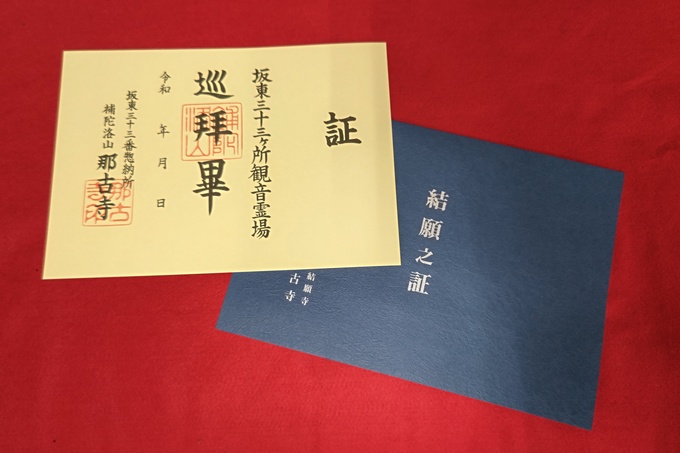 証
坂東三十三ヶ所観音霊場
巡拝畢
令和 年 月 日
坂東三十三番惣納所
補陀洛山 那古寺
結願之証
結願寺
古寺